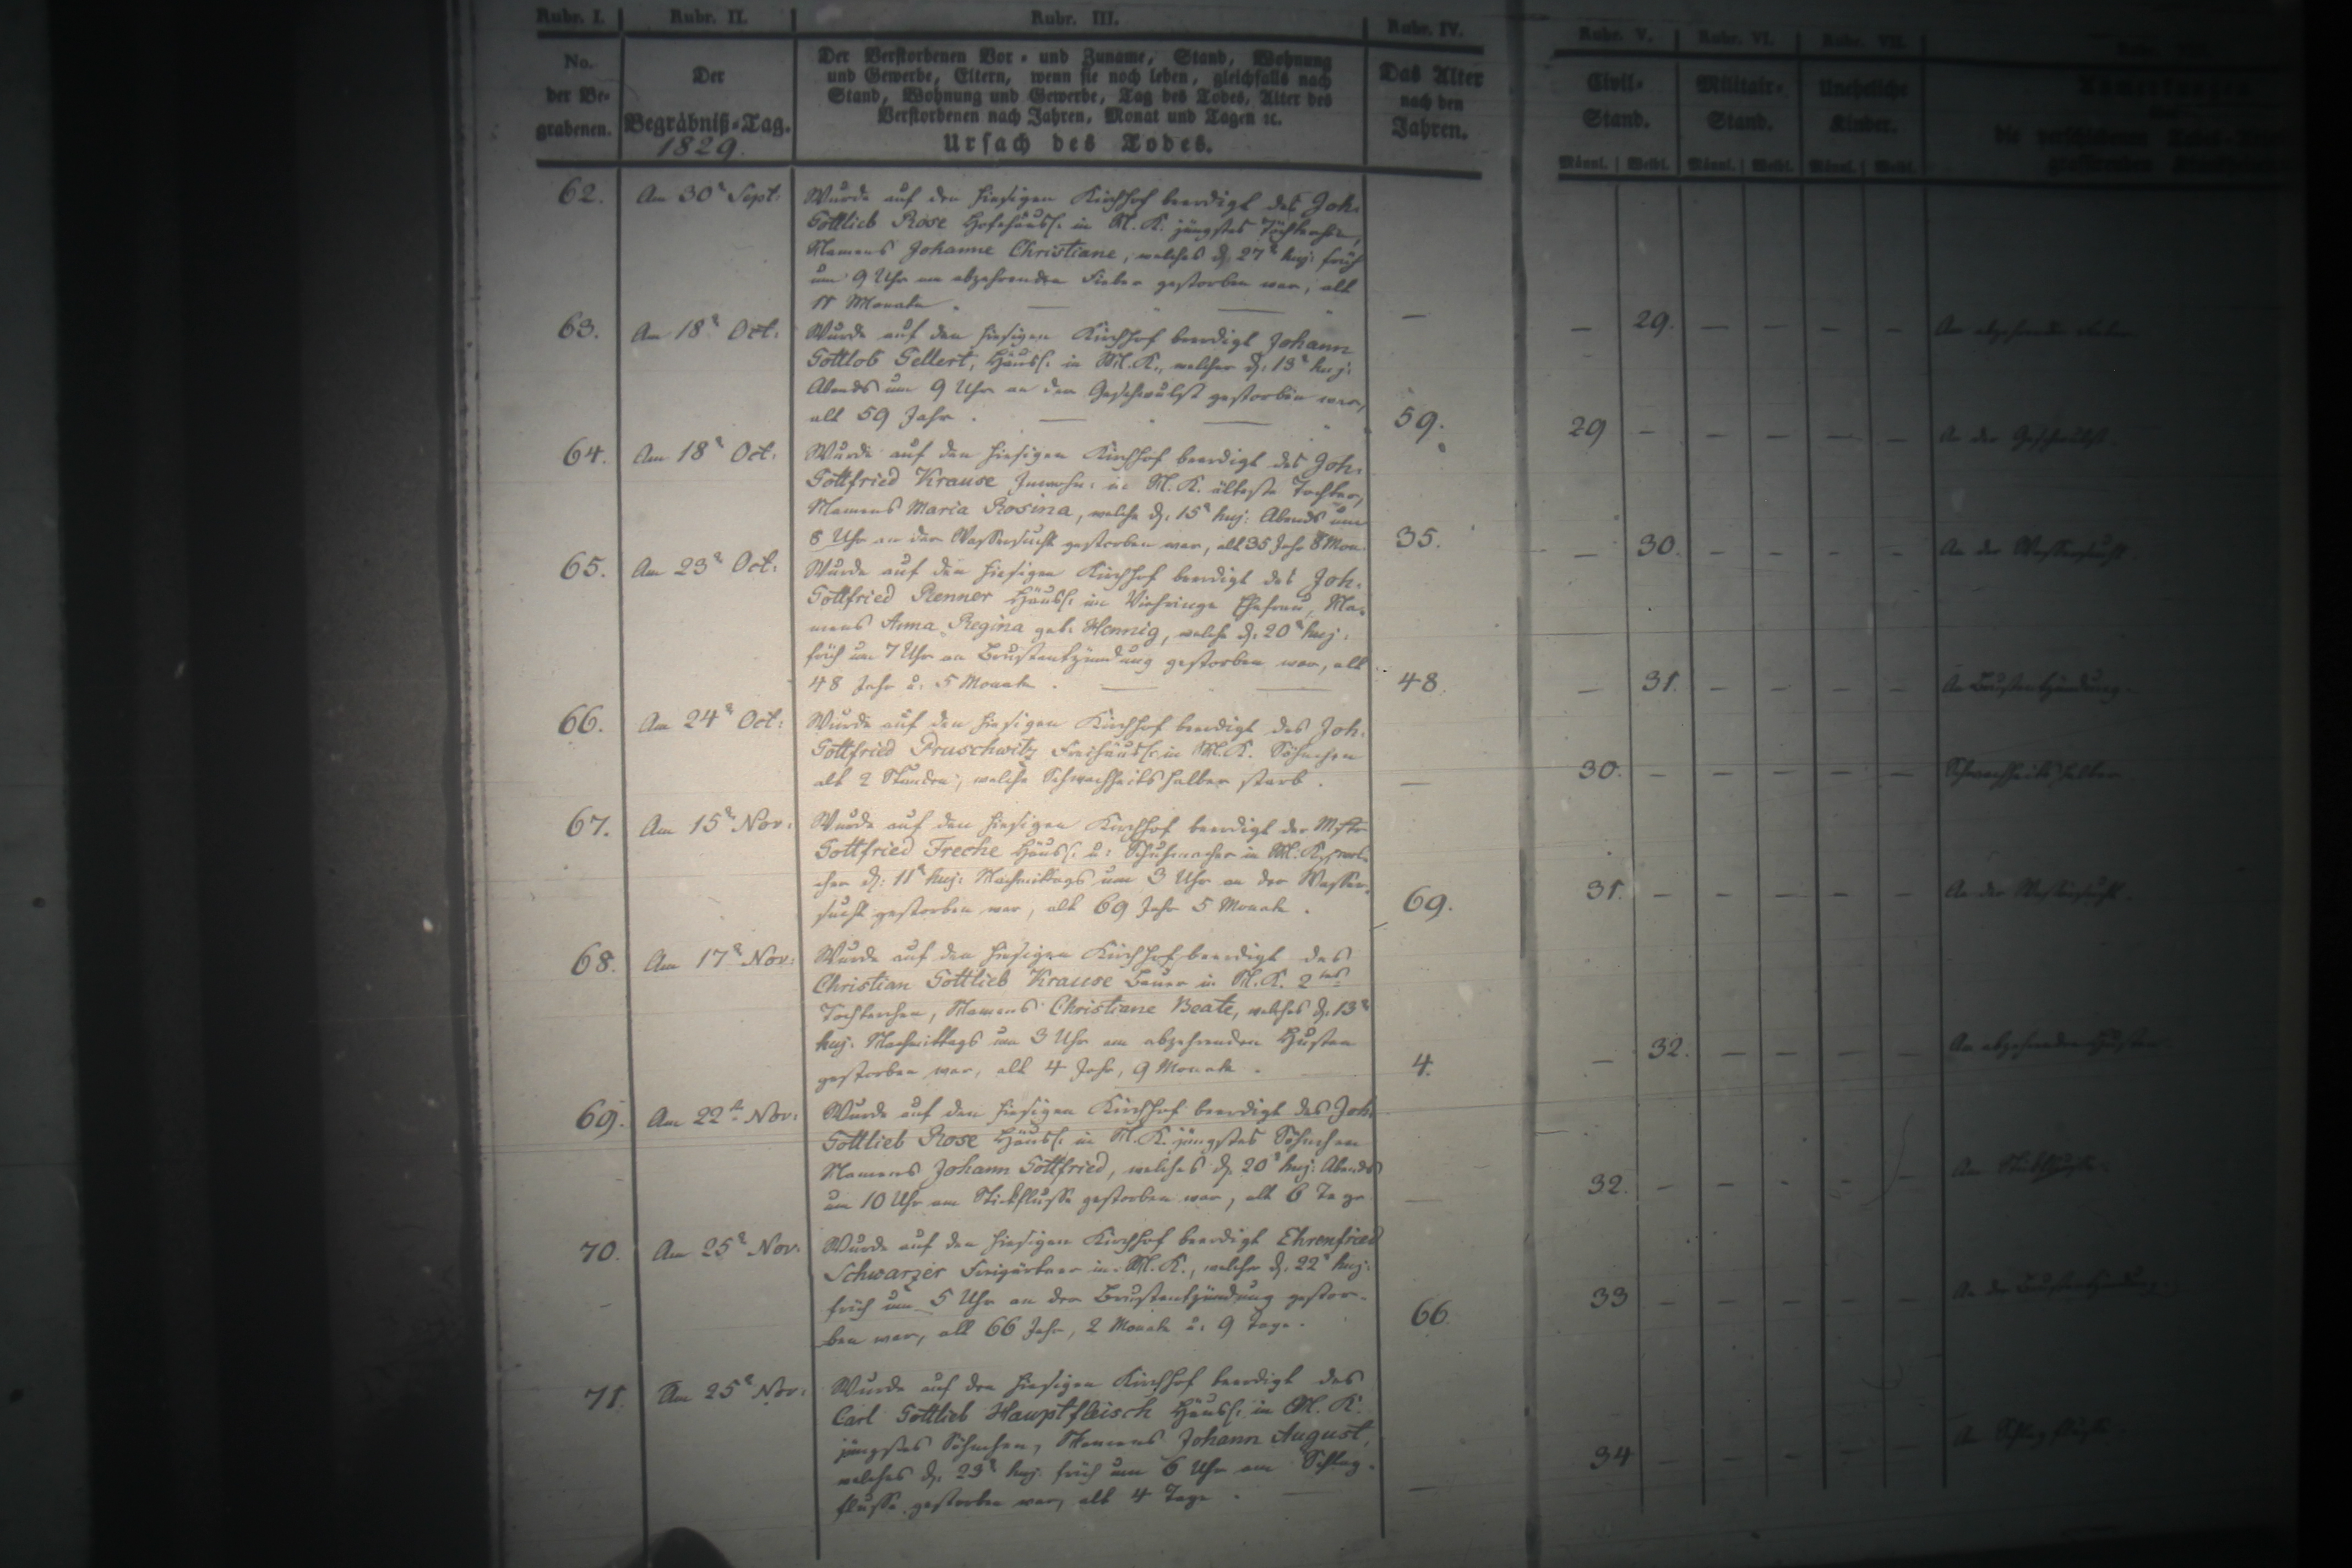 Rubr. I. Rubr. II. Rubr. III. Rubr. IV. Rubr. V. Rubr. VI. Rubr. VII.
No. der Begrabenen.
Der Begräbniß-Tag.
1829.
Der Verstorbenen Vor- und Zuname, Stand, Wohnung
und Gewerbe, Eltern, wenn sie noch leben, gleichfalls nach
Stand, Wohnung und Gewerbe, Tag des Todes, Alter des
Verstorbenen nach Jahren, Monat und Tagen ꝛc.
Ursach des Todes.
Das Alter
nach den
Jahren.
Civil-
Stand.
Militair-
Stand.
Uneheliche
Kinder.
Männl. Weibl. Männl. Weibl. Männl. Weibl.
62. Am 30t Sept: Wurde auf den hiesigen Kirchhof beerdigt des Joh.
Gottlieb Rose Hofehäusl. in M. K. jüngstes Töchterchen,
Namens Johanne Christiane, welches d. 27t huj: früh
um 9 Uhr am abzehrenden Fieber gestorben war, alt
11 Monate. — — — 29. — — — — Am abzehrenden Fieber
63. Am 18t Oct: Wurde auf den hiesigen Kirchhof beerdigt Johann
Gottlob Gellert, Häusl. in M. K., welcher d. 13t huj:
Abends um 9 Uhr an der Geschwulst gestorben war,
alt 59 Jahr. 59. 29 — — — — — An der Geschwulst
64. Am 18t Oct: Wurde auf den hiesigen Kirchhof beerdigt des Joh.
Gottfried Krause Inwohn: in M. K. älteste Tochter,
Namens Maria Rosina, welche d. 15t huj: Abends um
8 Uhr an der Wassersucht gestorben war, alt 35 Jahr 8 Mon. 35. — 30. — — — — An der Wassersucht
65. Am 23t Oct: Wurde auf den hiesigen Kirchhof beerdigt des Joh.
Gottfried Renner Häusl. im Viehringe Ehefrau, Na-
mens Anna Regina geb. Hennig, welche d. 20t huj:
früh um 7 Uhr an Brustentzündung gestorben war, alt
48 Jahr u. 5 Monate. 48. — 31. — — — — An Brustentzündung.
66. Am 24t Oct: Wurde auf den hiesigen Kirchhof beerdigt des Joh.
Gottfried Pruschwitz Freihäusl. in M. K. Söhnchen
alt 2 Stunden, welches Schwachheits halber starb. — 30. — — — — — Schwachheits halber
67. Am 15t Nov: Wurde auf den hiesigen Kirchhof beerdigt der Mstr
Gottfried Freche Häusl. u. Schuhmacher in M. K., wel-
cher d. 11t huj: Nachmittags um 3 Uhr an der Wasser-
sucht gestorben war, alt 69 Jahr 5 Monate. 69. 31. — — — — — An der Wassersucht.
68. Am 17t Nov: Wurde auf den hiesigen Kirchhof beerdigt des
Christian Gottlieb Krause Bauer in M. K. 2tes
Töchterchen, Namens Christiane Beate, welches d. 13t
huj: Nachmittags um 3 Uhr am abzehrenden Husten
gestorben war, alt 4 Jahr, 9 Monate. 4. — 32. — — — — Am abzehrenden Husten
69. Am 22t Nov: Wurde auf den hiesigen Kirchhof beerdigt des Joh.
Gottlieb Rose Häusl. in M. K. jüngstes Söhnchen
Namens Johann Gottfried, welches d. 20t huj: Abends
um 10 Uhr am Stickflusse gestorben war, alt 6 Tage — 32. — — — — — Am Stickflusse
70. Am 25t Nov: Wurde auf den hiesigen Kirchhof beerdigt Ehrenfried
Schwarzer Freigärtner in M. K., welcher d. 22t huj:
früh um 5 Uhr an der Brustentzündung gestor-
ben war, alt 66 Jahr, 2 Monate u. 9 Tage. 66. 33 — — — — — An der Brustentzündung.
71. Am 25t Nov: Wurde auf den hiesigen Kirchhof beerdigt des
Carl Gottlieb Hauptfleisch Häusl. in M. K.
jüngstes Söhnchen, Namens Johann August,
welches d. 23t huj: früh um 6 Uhr am Schlag-
flusse gestorben war, alt 4 Tage. — 34 — — — — — Am Schlagflusse.